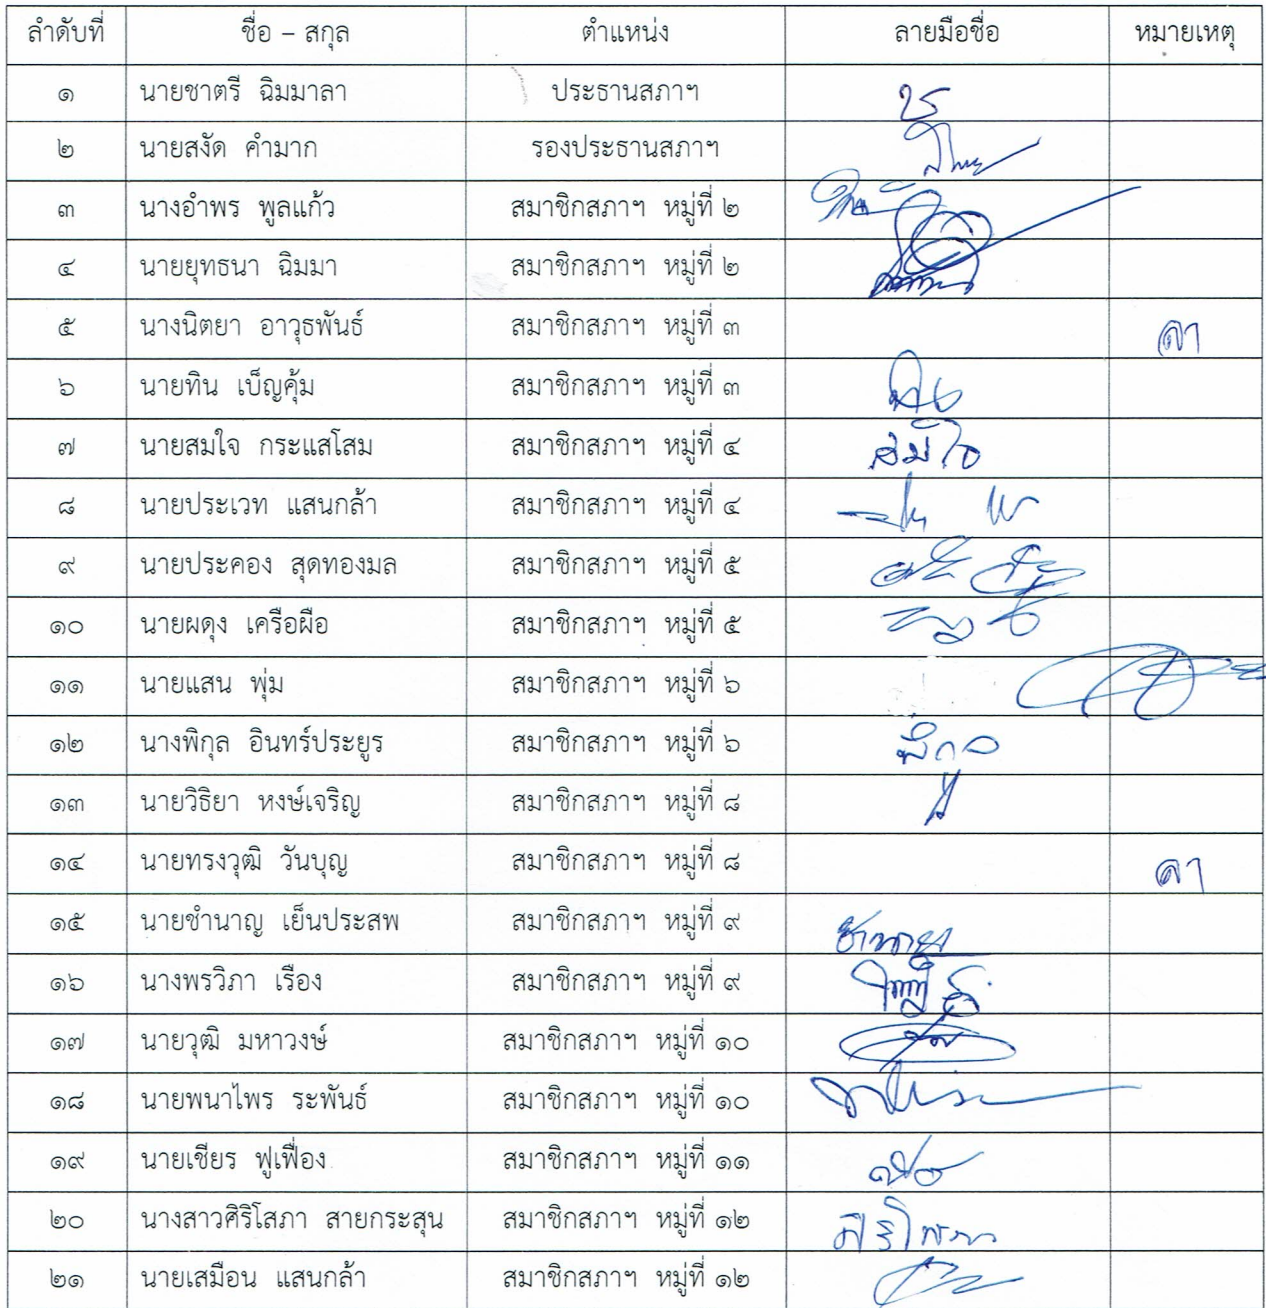 ลำดับที่ ชื่อ – สกุล ตำแหน่ง ลายมือชื่อ หมายเหตุ
๑ นายชาตรี ฉิมมาลา ประธานสภาฯ
๒ นายสงัด คำมาก รองประธานสภาฯ
๓ นางอำพร พูลแก้ว สมาชิกสภาฯ หมู่ที่ ๒
๔ นายยุทธนา ฉิมมา สมาชิกสภาฯ หมู่ที่ ๒
๕ นางนิตยา อาวุธพันธ์ สมาชิกสภาฯ หมู่ที่ ๓ ลา
๖ นายทิน เบ็ญคุ้ม สมาชิกสภาฯ หมู่ที่ ๓
๗ นายสมใจ กระแสโสม สมาชิกสภาฯ หมู่ที่ ๔ สมใจ
๘ นายประเวท แสนกล้า สมาชิกสภาฯ หมู่ที่ ๔
๙ นายประคอง สุดทองมล สมาชิกสภาฯ หมู่ที่ ๕
๑๐ นายผดุง เครือผือ สมาชิกสภาฯ หมู่ที่ ๕
๑๑ นายแสน พุ่ม สมาชิกสภาฯ หมู่ที่ ๖
๑๒ นางพิกุล อินทร์ประยูร สมาชิกสภาฯ หมู่ที่ ๖ พิกุล
๑๓ นายวิธิยา หงษ์เจริญ สมาชิกสภาฯ หมู่ที่ ๘
๑๔ นายทรงวุฒิ วันบุญ สมาชิกสภาฯ หมู่ที่ ๘ ลา
๑๕ นายชำนาญ เย็นประสพ สมาชิกสภาฯ หมู่ที่ ๙ ชำนาญ
๑๖ นางพรวิภา เรือง สมาชิกสภาฯ หมู่ที่ ๙
๑๗ นายวุฒิ มหาวงษ์ สมาชิกสภาฯ หมู่ที่ ๑๐
๑๘ นายพนาไพร ระพันธ์ สมาชิกสภาฯ หมู่ที่ ๑๐
๑๙ นายเชียร ฟูเฟื่อง สมาชิกสภาฯ หมู่ที่ ๑๑
๒๐ นางสาวศิริโสภา สายกระสุน สมาชิกสภาฯ หมู่ที่ ๑๒ ศิริโสภา
๒๑ นายเสมือน แสนกล้า สมาชิกสภาฯ หมู่ที่ ๑๒